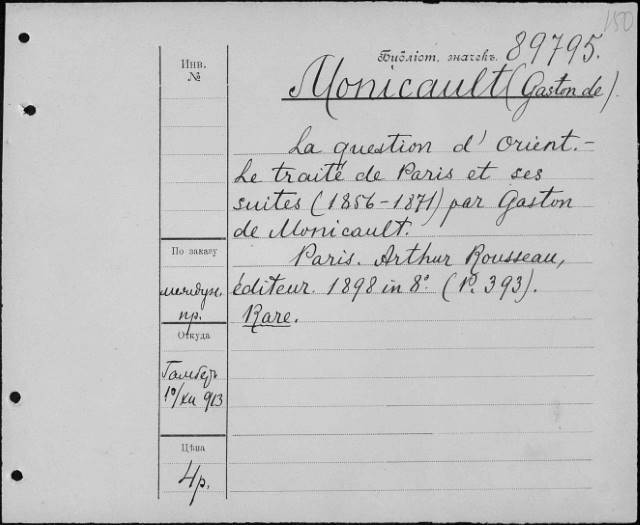 150
Библіот. значекъ. 89795.
Monicault (Gaston de).
Инв.
№
La question d'Orient. -
Le traité de Paris et ses
suites (1856-1871) par Gaston
de Monicault.
Paris. Arthur Rousseau,
éditeur. 1898 in 8° (P. 393).
Rare.
По заказу
междун.
пр.
Откуда
Гамбер
10/XII 913
Цѣна
4 р.